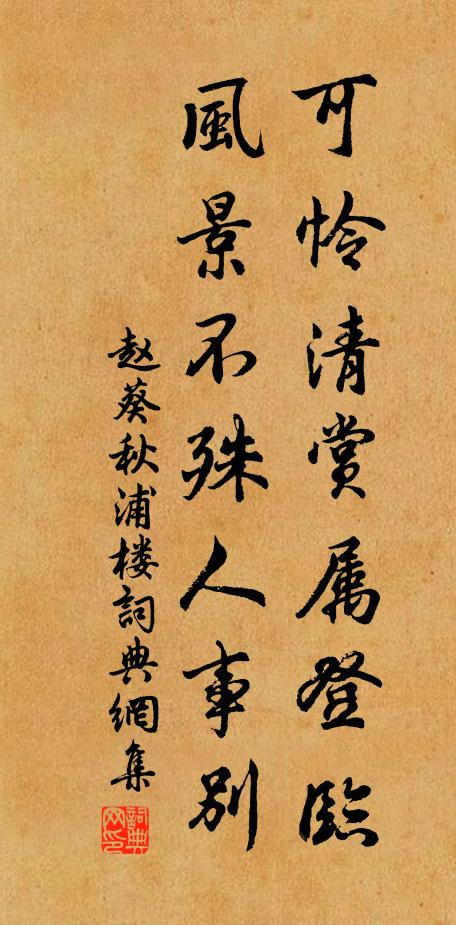 可怜清赏属登临
風景不殊人事別
赵葵秋浦楼詞典網集
詞典
网印